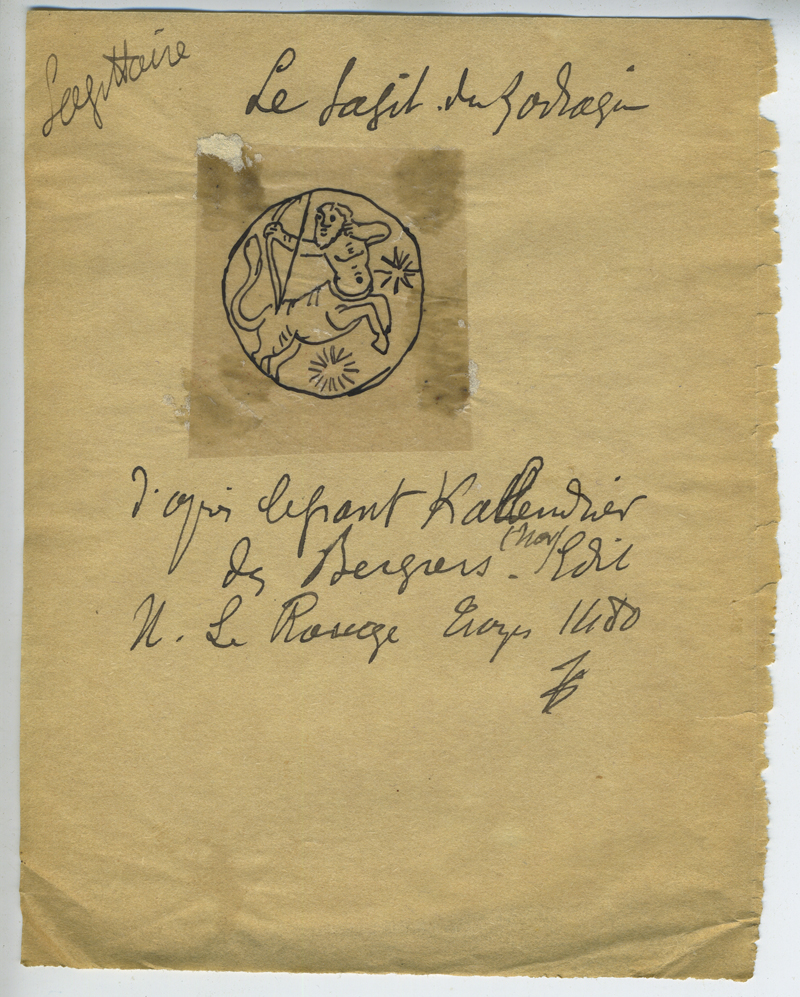 Sagittaire
Le Sagit. du Zodiaque
d'après le grant Kallendrier
des Bergers. (Nov) Edit
N. Le Rouge Troyes 1480